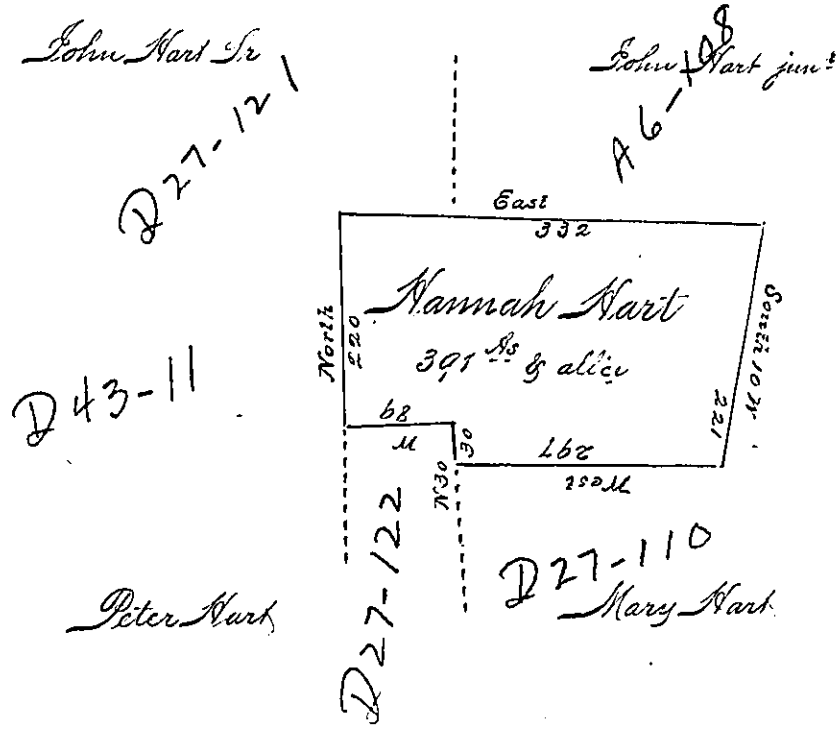 John Hart Sr
John Hart junr
D27-121
A6-198
East
332
Hannah Hart
391 As & allce
North
220
South 10 W
221
D43-11
68
W
30
N30
297
West
D27-122
D27-110
Peter Hart
Mary Hart